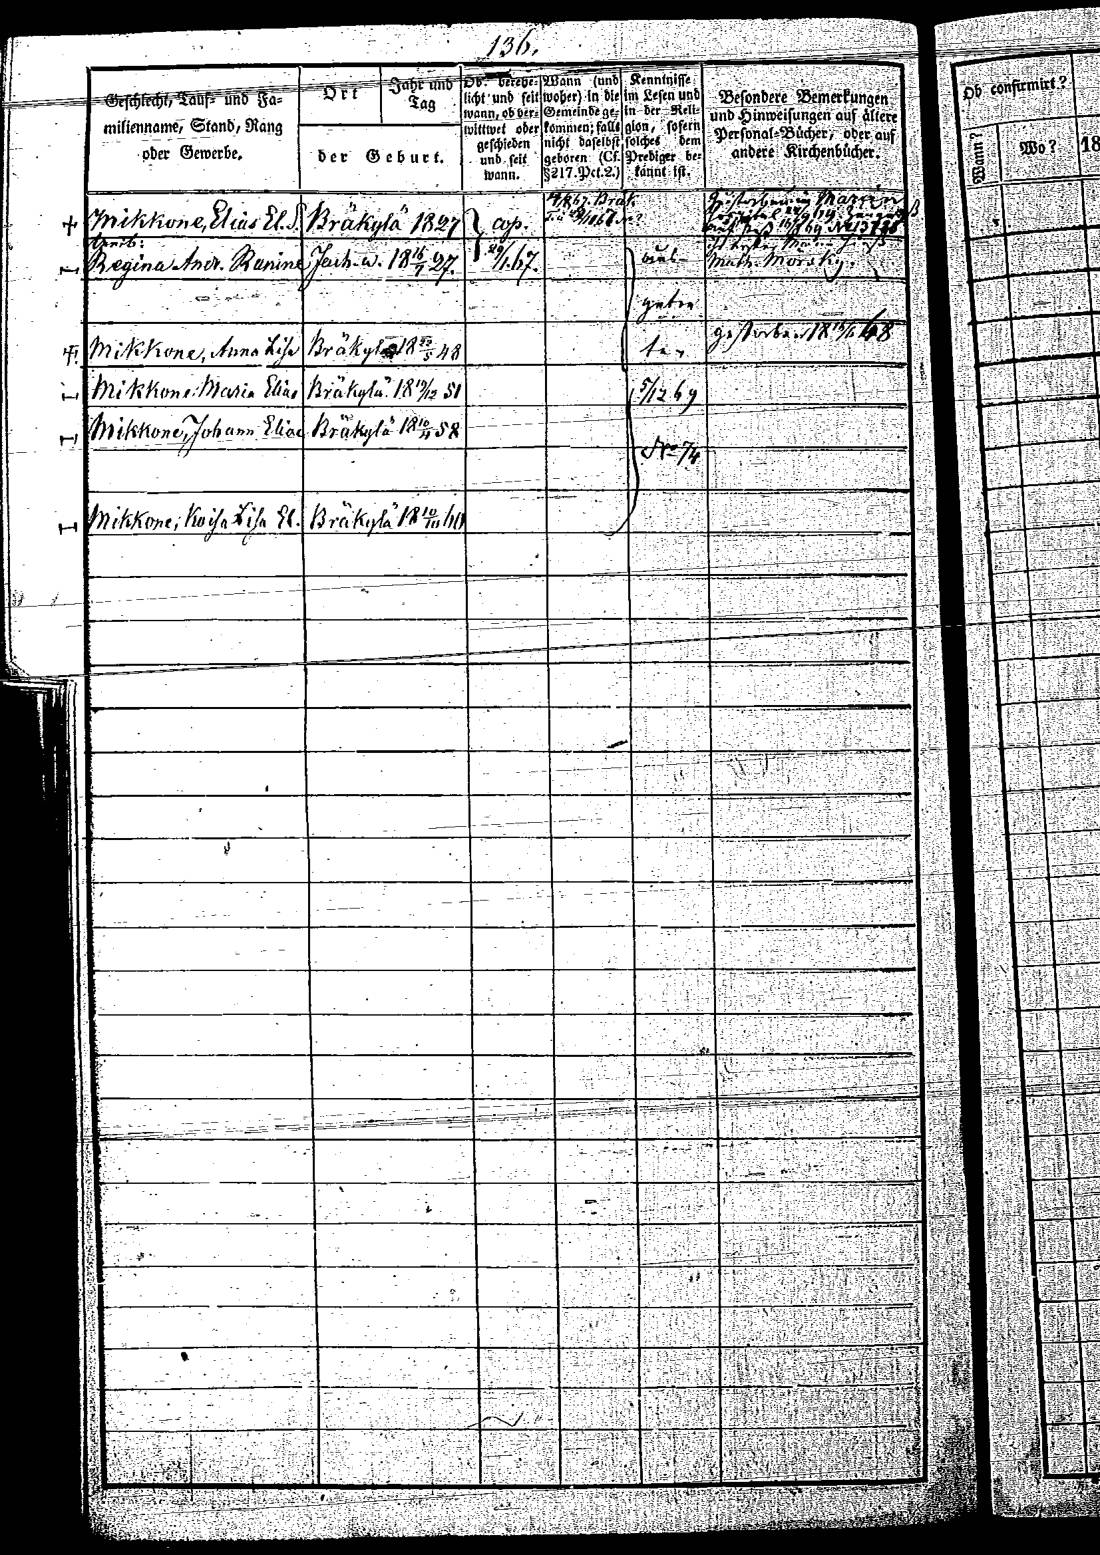 136.
Geschlecht, Tauf- und Fa-
milienname, Stand, Rang
oder Gewerbe.
Ort
Jahr und
Tag
der Geburt.
Ob verehe-
licht und seit
wann, ob ver-
wittwet oder
geschieden
und seit
wann.
Wann (und
woher) in die
Gemeinde ge-
kommen; falls
nicht daselbst
geboren (Cf.
§217. Pct. 2.)
Kenntnisse
im Lesen und
in der Reli-
gion, sofern
solches dem
Prediger be-
kannt ist.
Besondere Bemerkungen
und Hinweisungen auf ältere
Personal-Bücher, oder auf
andere Kirchenbücher.
Ob confirmirt?
Wann?
Wo?
18
Mikkone, Elias El. S. Bräkylä 1827 cop.
Regina Andr. Ranine 18 16/7 27. 29/1 67.
Math. Morsky.
Mikkone, Anna Lisa Bräkylä 18 23/5 48 gestorben 18
Mikkone Maria Elias Bräkylä 18 19/12 51 5/12 69
Mikkone, Johann Elias Bräkylä 18 58
No 74
Mikkone, Lisa El. Bräkylä 18 10/10 60